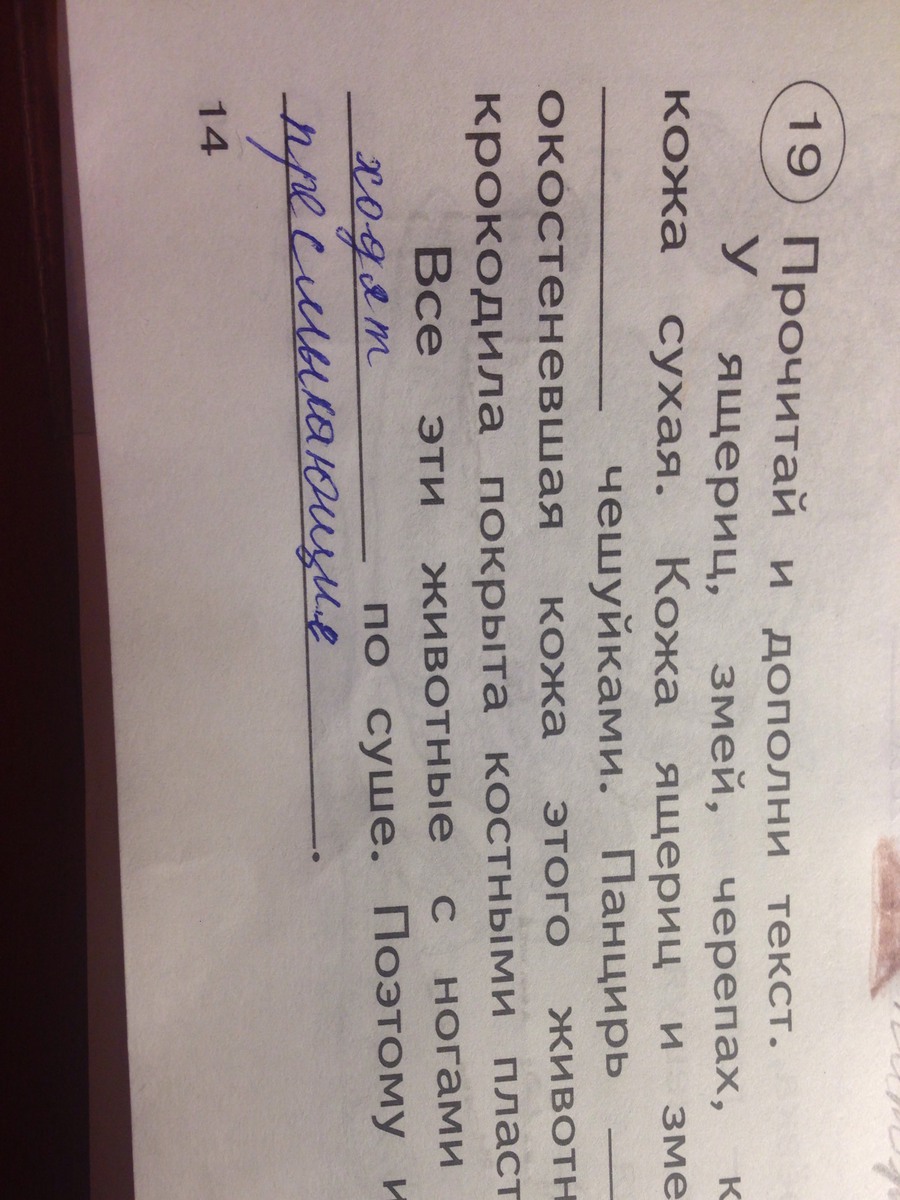 19 Прочитай и дополни текст.
У ящериц, змей, черепах, к
кожа сухая. Кожа ящериц и зме
чешуйками. Панцирь
окостеневшая кожа этого животн
крокодила покрыта костными пласт
Все эти животные с ногами
ходят по суше. Поэтому и
пресмыкающие.
14